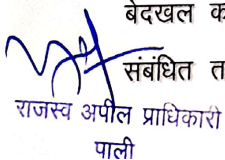 बेदखल क
संबंधित त
राजस्व अपील प्राधिकारी
पाली